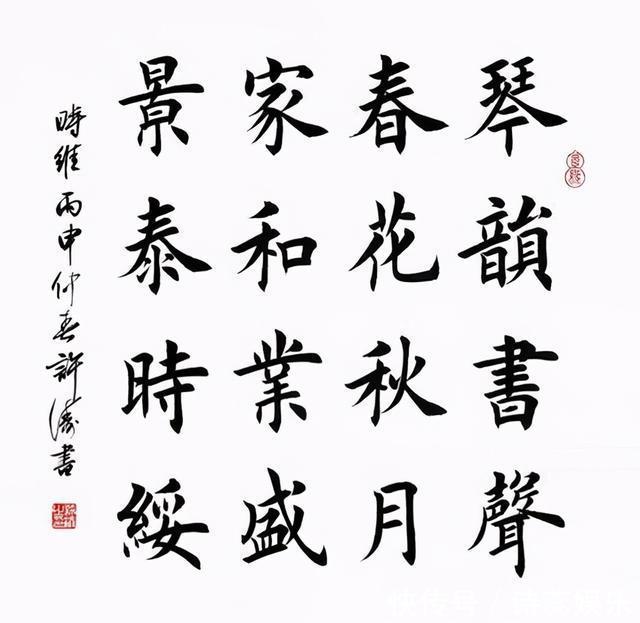 琴韻書聲
春花秋月
家和業盛
景泰時綏
時維丙申仲春許濤書
快传号 / 诗蕊娱乐